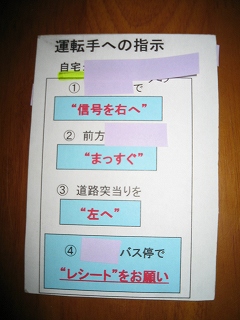 運転手への指示
自宅
① で
“信号を右へ”
② 前方
“まっすぐ”
③ 道路突当りを
“左へ”
④ バス停で
“レシート”をお願い